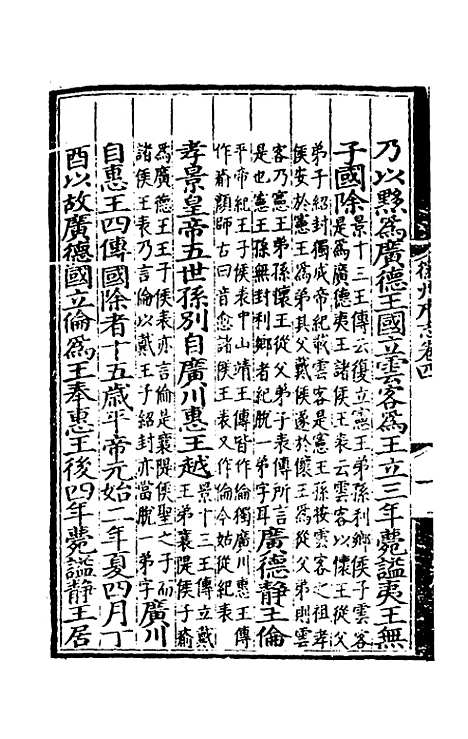 乃以黟爲廣德王國立雲客爲王立三年薨諡夷王無
子國除景十三王傳云復立憲王弟孫利鄉侯子雲客
是爲廣德夷王諸侯王表云雲客以懷王從父
弟子紹封獨成帝紀載雲客是憲王孫按雲客之祖孝
侯安於憲王爲弟其父戴侯遂於懷王爲從父弟則雲
客乃憲王弟孫懷王從父弟子表傳所言
是也憲王孫無封利鄉者紀脫一弟字耳廣德靜王倫
平帝紀王子侯表中山靖王傳皆作倫獨廣川惠王傳
作瘉顏師古曰音愈諸侯王表又作倫今姑從紀表
孝景皇帝五世孫別自廣川惠王越景十三王傳立戴
王弟襄隄侯子瘉
爲廣德王王子侯表亦言倫是襄隄侯聖之子而
諸侯王表乃言倫以戴王子紹封亦當脫一弟字廣川
自惠王四傳國除者十五歲平帝元始二年夏四月丁
酉以故廣德國立倫爲王奉惠王後四年薨諡靜王居
徽州府志卷四